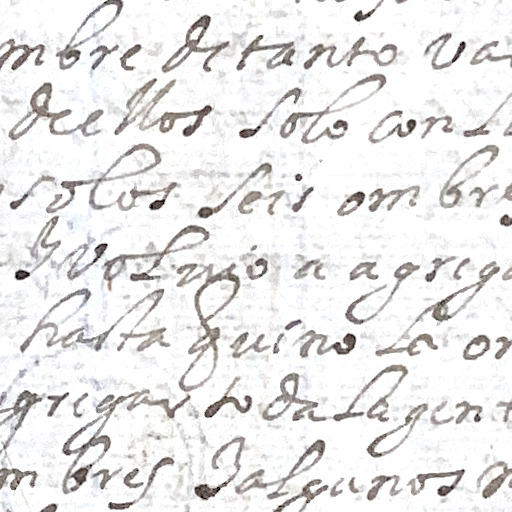 mbre de tanto va
de ellos solo con
solos seis ombre
Y volvio a agrega
hasta q vino la or
gregar toda la gent
mbres Y algunos